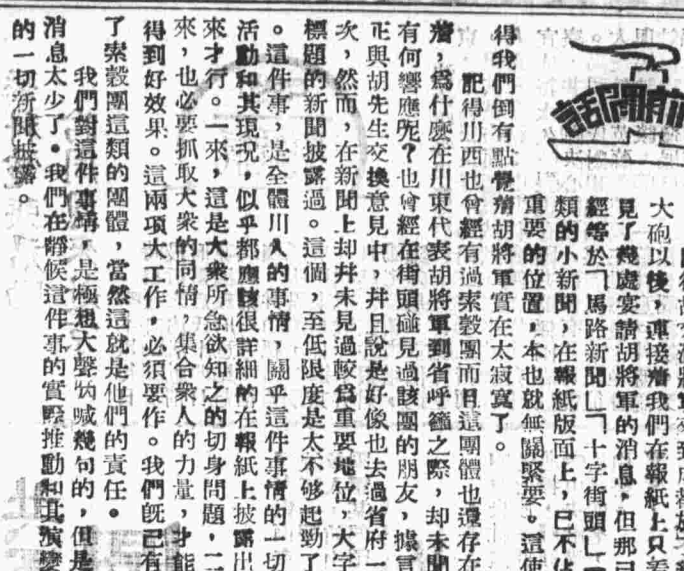 話閒前
大砲以後，連接着我們在報紙上只看
見了幾處宴請胡將軍的消息，但那已
經等於「馬路新聞」「十字街頭」
類的小新聞，在報紙版面上，已不佔
重要的位置，本也就無關緊要。這使
得我們倒有點覺着胡將軍實在太寂寞了。
記得川西也曾經有過索穀團而且這團體也還存在
着，爲什麽在川東代表胡將軍到省呼籲之際，却未聞
有何響應呢？也曾經在街頭碰見過該團的朋友，據言
正與胡先生交換意見中，幷且說是好像也去過省府一
次，然而，在新聞上却幷未見過較爲重要地位，大字
標題的新聞披露過。這個，至低限度是太不够起勁了
。這件事，是全體川人的事情，關乎這件事情的一切
活動和其現况，似乎都應該很詳細的在報紙上披露出
來才行。一來，這是大衆所急欲知之的切身問題，二
來，也必要抓取大衆的同情，集合衆人的力量，才能
得到好效果。這兩項大工作，必須要作。我們旣已有
了索穀團這類的團體，當然這就是他們的責任。
我們對這件事情，是極想大聲吶喊幾句的，但是
消息太少了。我們在靜候這件事的實際推動和其演變
的一切新聞披露。